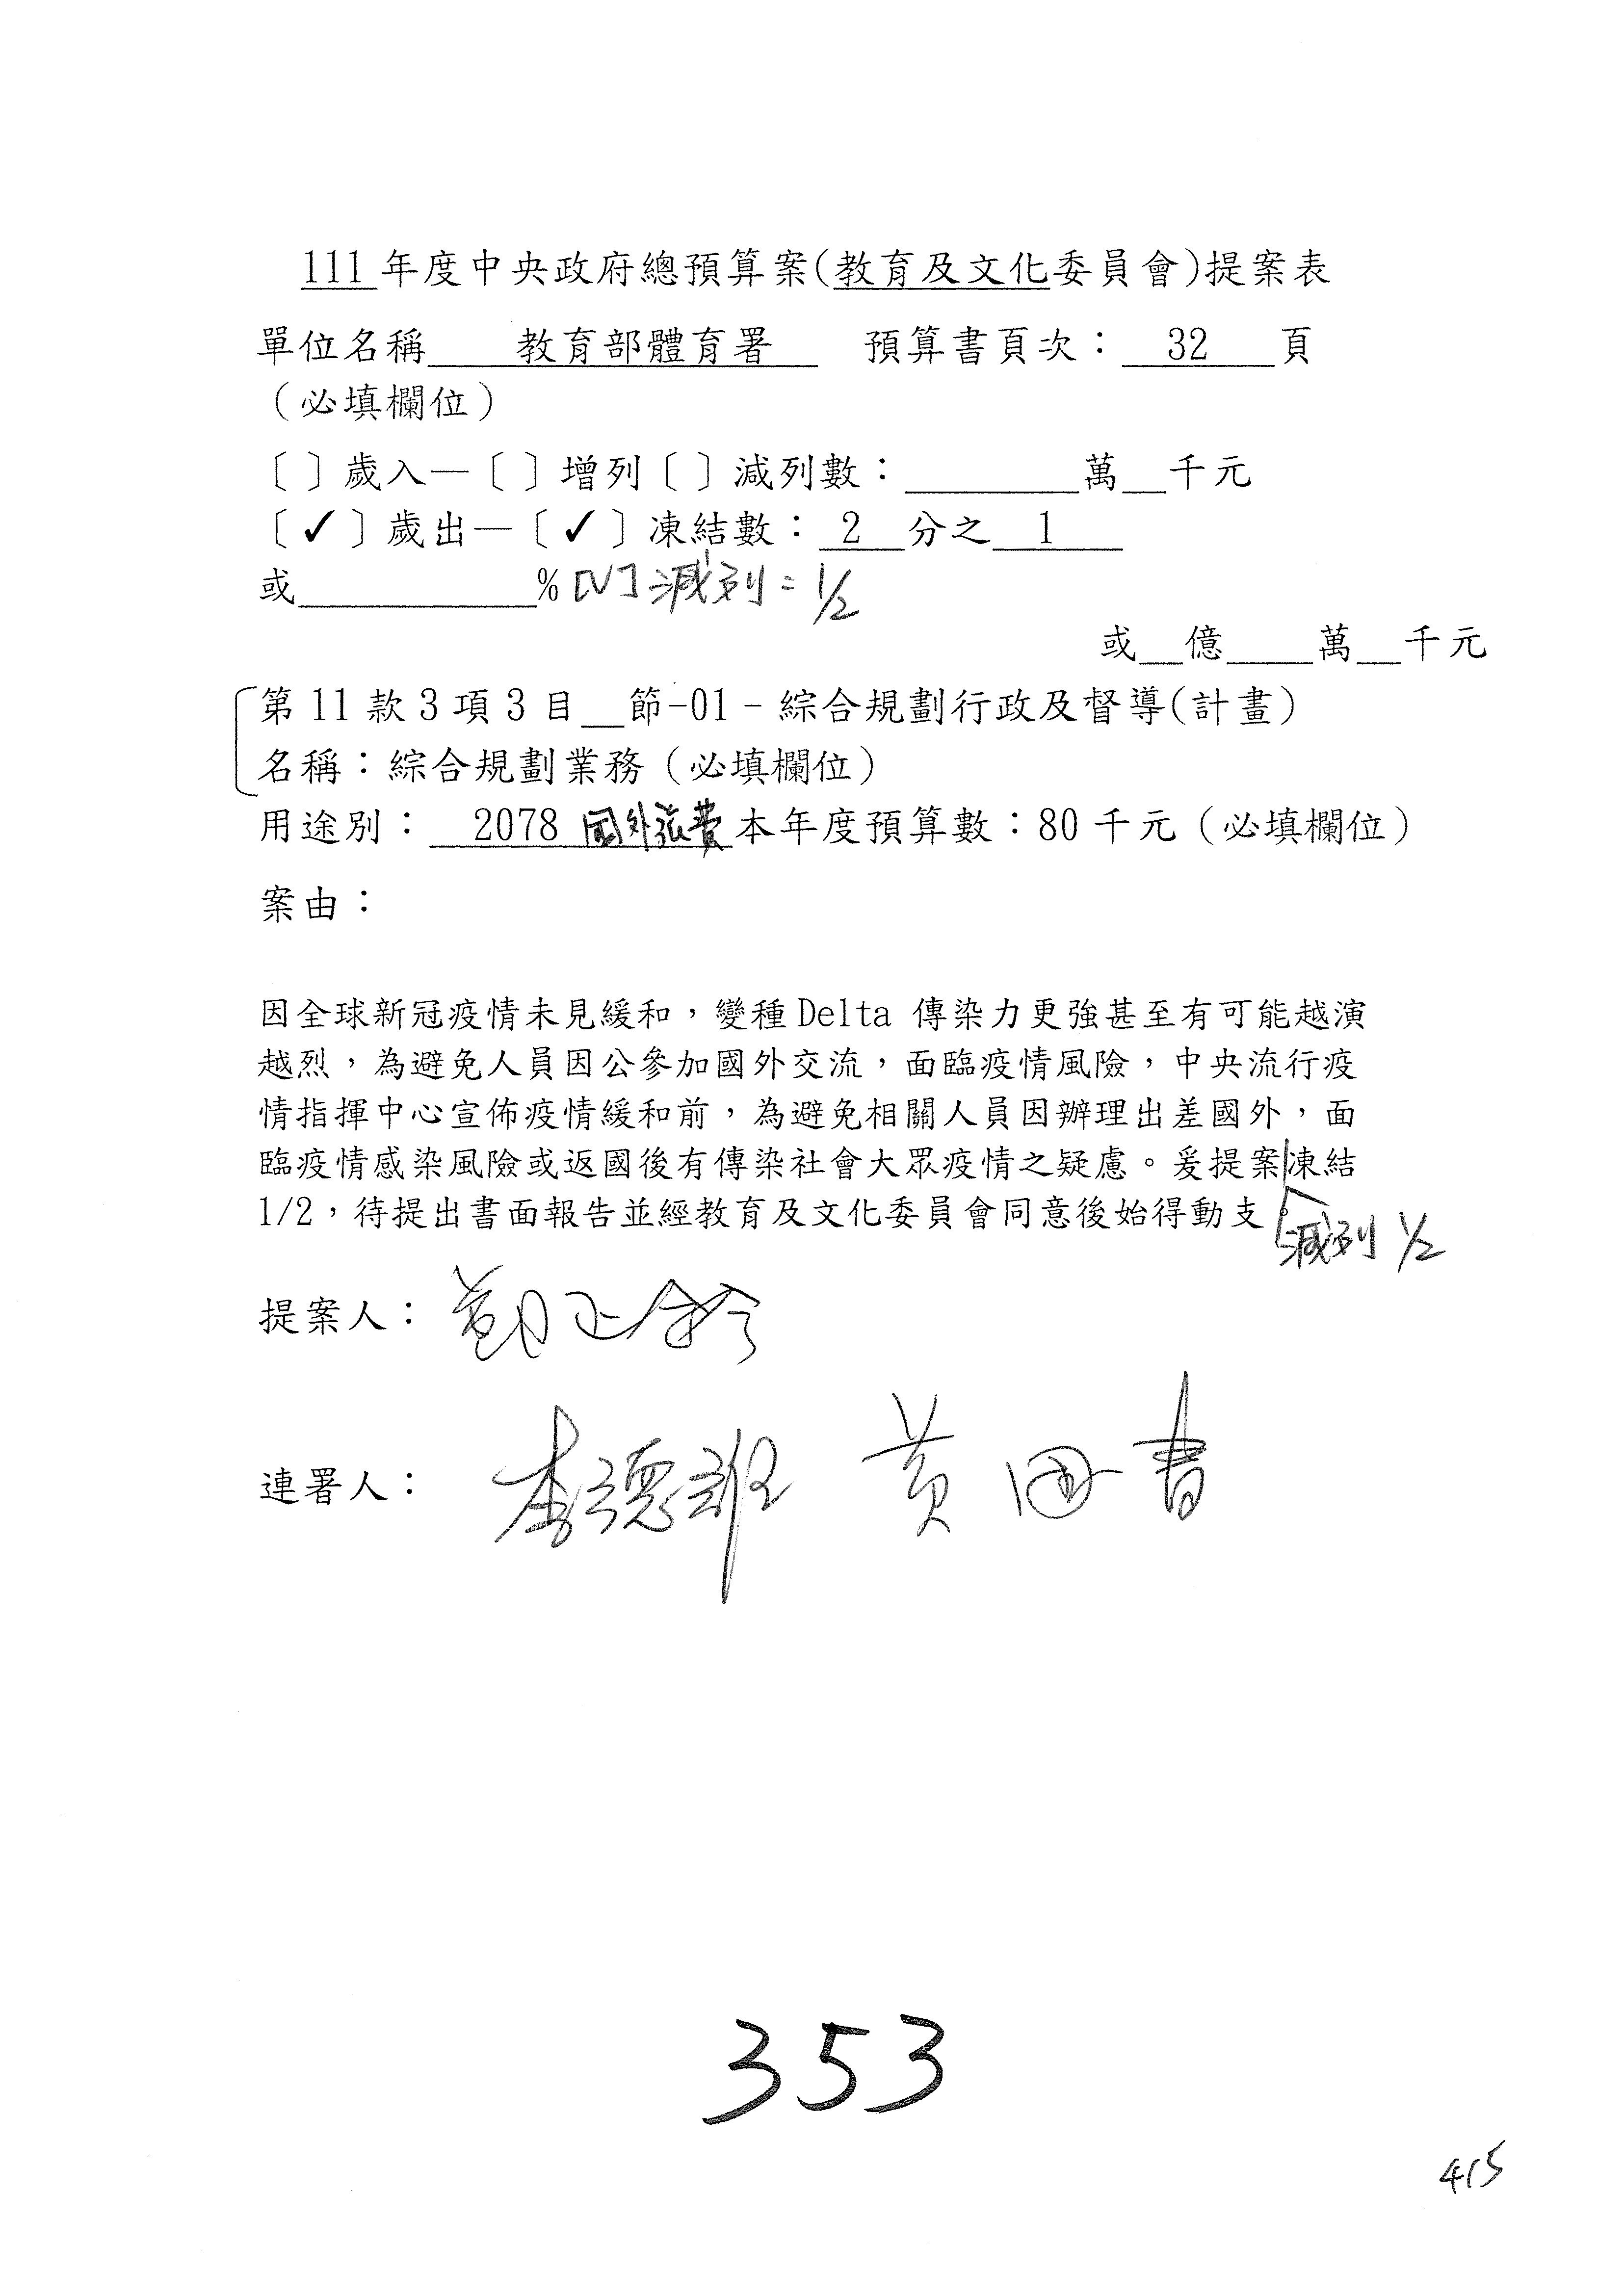 111年度中央政府總預算案(教育及文化委員會)提案表
單位名稱 教育部體育署 預算書頁次： 32 頁
（必填欄位）
〔 〕歲入—〔 〕增列〔 〕減列數：________萬__千元
〔✓〕歲出—〔✓〕凍結數： 2 分之 1
或__________% [V] 減列：1/2
或__億____萬__千元
第 11 款 3 項 3 目__節-01－綜合規劃行政及督導(計畫)
名稱：綜合規劃業務（必填欄位）
用途別： 2078 國外旅費 本年度預算數：80 千元（必填欄位）
案由：
因全球新冠疫情未見緩和，變種 Delta 傳染力更強甚至有可能越演
越烈，為避免人員因公參加國外交流，面臨疫情風險，中央流行疫
情指揮中心宣佈疫情緩和前，為避免相關人員因辦理出差國外，面
臨疫情感染風險或返國後有傳染社會大眾疫情之疑慮。爰提案凍結
1/2，待提出書面報告並經教育及文化委員會同意後始得動支。
減列 1/2
提案人： 鄭正鈐
連署人： 李德維 黃國書
353
415